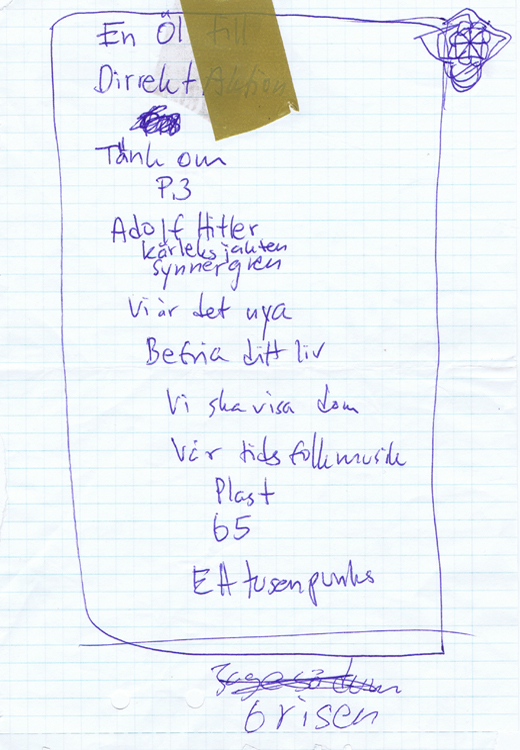 En Öl till
Dirrekt Aktion
Tänk om
P.3
Adolf Hitler
kärleksjakten
Synnergren
Vi är det nya
Befria ditt liv
Vi ska visa dom
Vår tids folkmusik
Plast
65
Ett tusen punks
Grisen